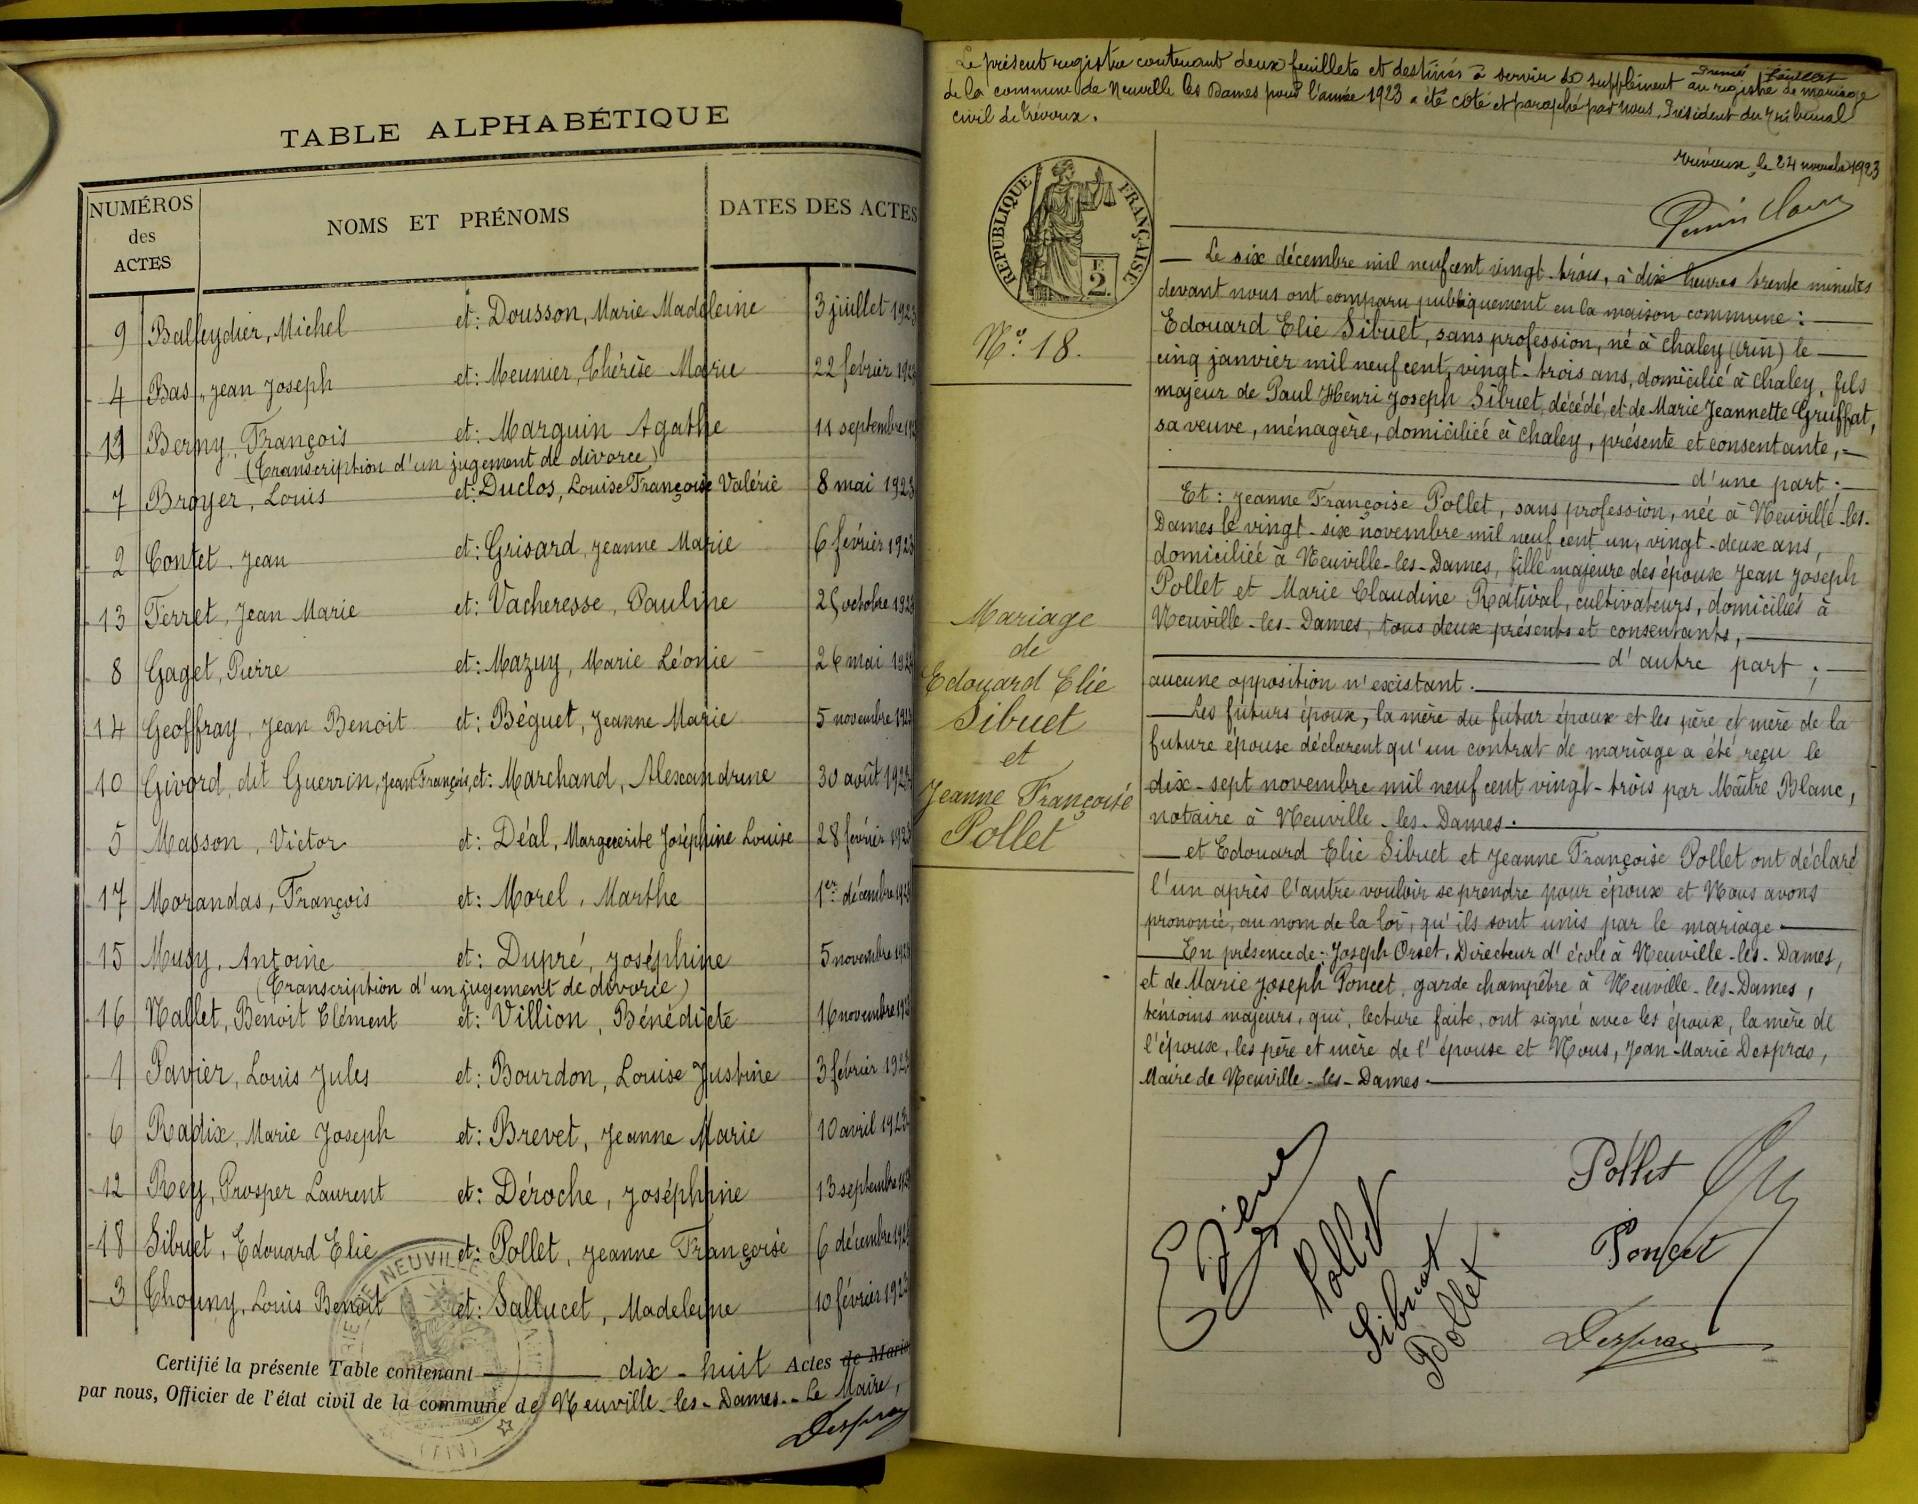 TABLE ALPHABÉTIQUE
NUMÉROS des ACTES
NOMS ET PRÉNOMS
DATES DES ACTES
9 Balleydier, Michel et: Dousson, Marie Madeleine 3 juillet 1923
4 Bas, Jean Joseph et: Meunier, Thérèse Marie 22 février 1923
11 Berny, François et: Marguin Agathe 11 septembre 1923
(Transcription d'un jugement de divorce)
7 Broyer, Louis et: Duclos, Louise Françoise Valérie 8 mai 1923
2 Contet, Jean et: Grisard, Jeanne Marie 6 février 1923
13 Ferret, Jean Marie et: Vacheresse, Pauline 25 octobre 1923
8 Gaget, Pierre et: Mazuy, Marie Léonie 26 mai 1923
14 Geoffray, Jean Benoit et: Béguet, Jeanne Marie 5 novembre 1923
10 Givord, dit Guerrin, Jean François, et: Marchand, Alexandrine 30 août 1923
5 Masson, Victor et: Déal, Marguerite Joséphine Louise 28 février 1923
17 Morandas, François et: Morel, Marthe 1er décembre 1923
15 Musy, Antoine et: Dupré, Joséphine 5 novembre 1923
(Transcription d'un jugement de divorce)
16 Nallet, Benoit Clément et: Villion, Bénédicte 16 novembre 1923
1 Pavier, Louis Jules et: Bourdon, Louise Justine 3 février 1923
6 Radix, Marie Joseph et: Brevet, Jeanne Marie 10 avril 1923
12 Rey, Prosper Laurent et: Déroche, Joséphine 13 septembre 1923
18 Sibuet, Edouard Elie et: Pollet, Jeanne Françoise 6 décembre 1923
3 Thouny, Louis Benoit et: Sallucet, Madeleine 10 février 1923
Certifié la présente Table contenant dix-huit Actes de Maria
par nous, Officier de l'état civil de la commune de Neuville-les-Dames. Le Maire,
Despras
Le présent registre contenant deux feuillets et destinés à servir de supplément au registre de mariage
de la commune de Neuville les Dames pour l'année 1923 a été coté et paraphé par nous, Président du Tribunal
civil de Trévoux.
feuillet
Trévoux, le 24 novembre 1923
RÉPUBLIQUE FRANÇAISE
F. 2
No. 18.
Mariage
de
Edouard Elie
Sibuet
et
Jeanne Françoise
Pollet
Le six décembre mil neuf cent vingt-trois, à dix heures trente minutes
devant nous ont comparu publiquement en la maison commune:
Edouard Elie Sibuet, sans profession, né à Chaley (Ain) le
cinq janvier mil neuf cent, vingt-trois ans, domicilié à Chaley, fils
majeur de Paul Henri Joseph Sibuet, décédé, et de Marie Jeannette Gruffat,
sa veuve, ménagère, domiciliée à Chaley, présente et consentante,
d'une part.
Et: Jeanne Françoise Pollet, sans profession, née à Neuville-les-
Dames le vingt-six novembre mil neuf cent un, vingt-deux ans,
domiciliée à Neuville-les-Dames, fille majeure des époux Jean Joseph
Pollet et Marie Claudine Ratival, cultivateurs, domiciliés à
Neuville-les-Dames, tous deux présents et consentants,
d'autre part;
aucune opposition n'existant.
Les futurs époux, la mère du futur époux et les père et mère de la
future épouse déclarent qu'un contrat de mariage a été reçu le
dix-sept novembre mil neuf cent vingt-trois par Maître Blanc,
notaire à Neuville-les-Dames.
et Edouard Elie Sibuet et Jeanne Françoise Pollet ont déclaré
l'un après l'autre vouloir se prendre pour époux et Nous avons
prononcé, au nom de la loi, qu'ils sont unis par le mariage
En présence de: Joseph Orset, Directeur d'école à Neuville-les-Dames,
et de Marie Joseph Poncet, garde champêtre à Neuville-les-Dames,
témoins majeurs, qui, lecture faite, ont signé avec les époux, la mère de
l'époux, les père et mère de l'épouse et Nous, Jean-Marie Despras,
Maire de Neuville-les-Dames.
Pollet
Pollet
Sibuet
Pollet
Poncet
Despras